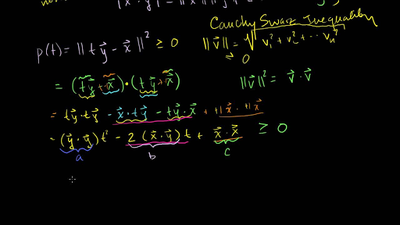 Cauchy Swarz Inequality
p(t) = ‖t y⃗ - x⃗‖² ≥ 0
‖v⃗‖ = √(v₁² + v₂² + ⋯ vₙ²)
≥ 0
= (t y⃗ - x⃗) · (t y⃗ - x⃗)
‖v⃗‖² = v⃗ · v⃗
= t y⃗ · t y⃗ - x⃗ · t y⃗ - t y⃗ · x⃗ + 1x⃗ · 1x⃗
= (y⃗ · y⃗) t² - 2 (x⃗ · y⃗) t + x⃗ · x⃗ ≥ 0
a b c